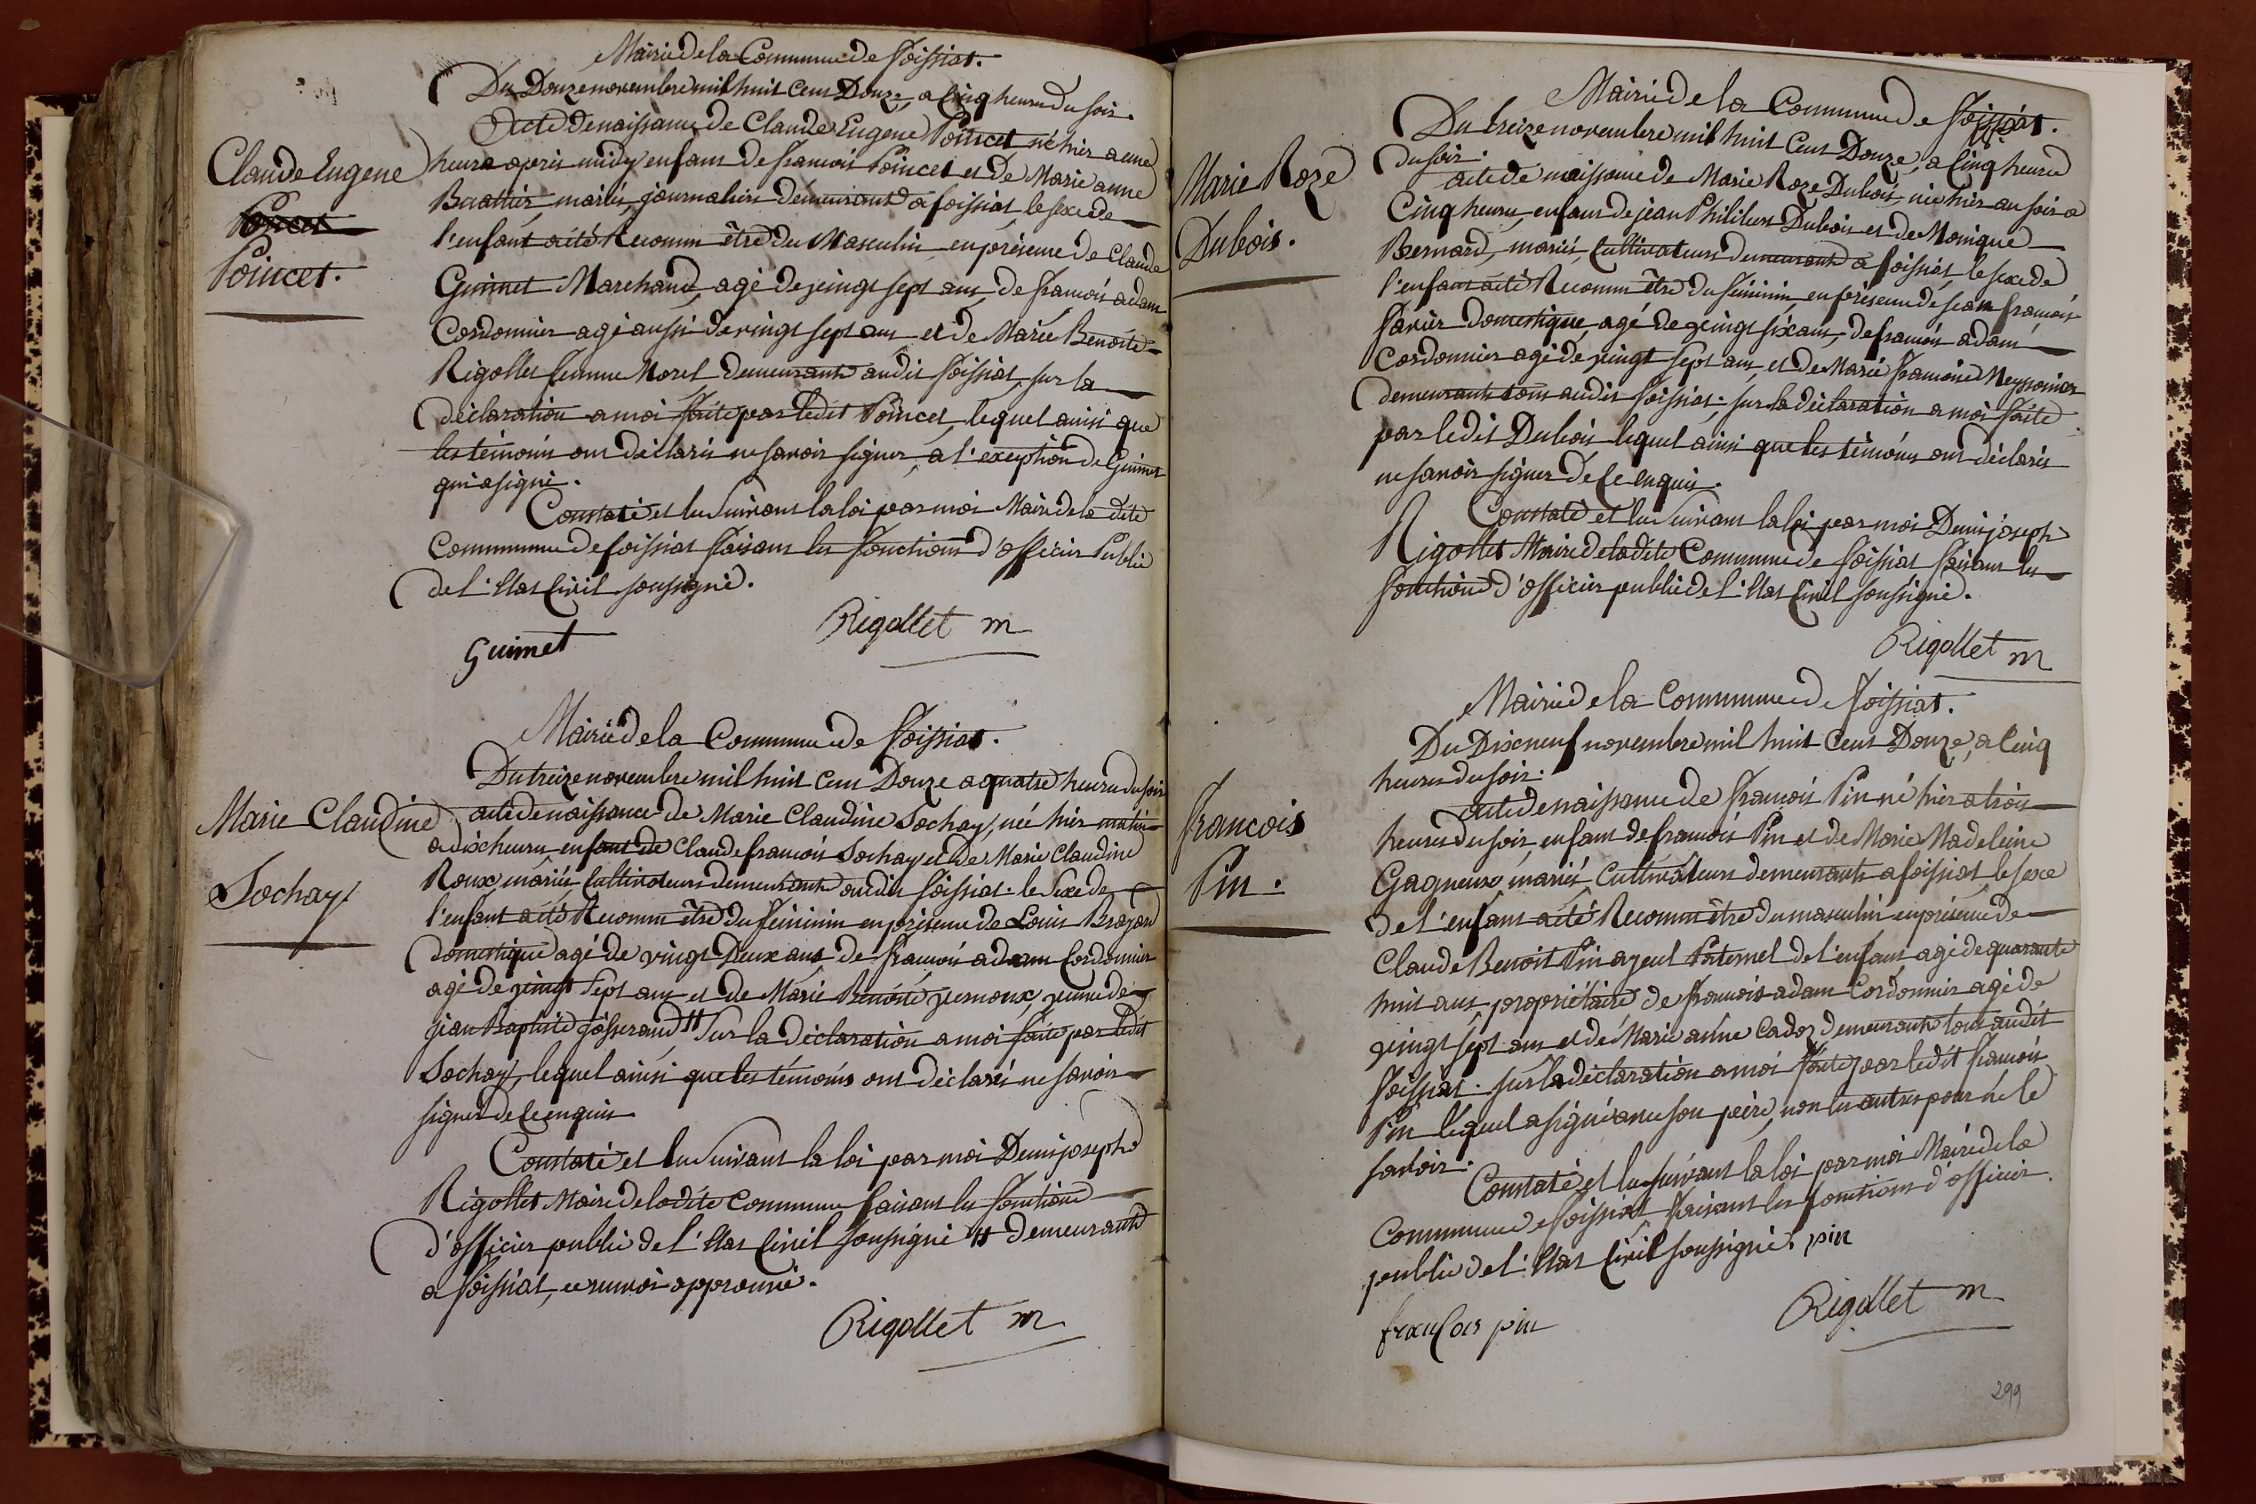 Mairie de la Commune de Foissiat.
Du Douze novembre mil huit Cent Douze, a Cinq heures du soir.
Acte de naissance de Claude Eugene Poincet né hier a une
Claude Eugene
Poincet
Poincet.
heure après midy enfant de francois Poincet et de Marie anne
mariés, journaliers demeurants a foissiat, le sexe de
l'enfant a été Reconnu être du Masculin, en présence de Claude
Guimet Marchand, agé de vingt sept ans, de francois adam
Cordonnier agé aussi de vingt sept ans et de Marie Benoite
Rigollet femme Morel demeurants audit foissiat, sur la
déclaration a moi faite par ledit Poincet, lequel ainsi que
les témoins ont déclarés ne savoir signer, a l'exception de Guimet
qui a signé.
Constaté et lu Suivant la loi par moi Maire de la dite
Commune de foissiat faisant les fonctions d'officier Public
de l'Etat Civil soussigné.
Guimet
Rigollet m
Mairie de la Commune de foissiat.
Du treize novembre mil huit Cent Douze a quatre heures du soir
Marie Claudine
Sochay
acte de naissance de Marie Claudine Sochay, née hier matin
a dix heures enfant de Claude francois Sochay et de Marie Claudine
Roux, mariés Cultivateurs demeurants audit foissiat. le Sexe de
l'enfant a été Reconnu être du féminin en présence de Louis Brayard
domestique agé de vingt Deux ans de francois adam Cordonnier
agé de vingt Sept ans et de Marie Benoite vernoux, veuve de
jean Baptiste josserand # Sur la déclaration a moi faite par ledit
Sochay, lequel ainsi que les témoins ont déclarés ne savoir
signer de Ce enquis
Constaté et lu Suivant la loi par moi Denis joseph
Rigollet Maire de la dite Commune faisant les fonctions
d'officier public de l'Etat Civil soussigné # demeurants
a foissiat, ce renvoi approuvé.
Rigollet m
Mairie de la Commune de foissiat.
Du treize novembre mil huit Cent Douze, a Cinq heures
du soir.
Marie Roze
Dubois.
acte de naissance de Marie Roze Dubois, née hier au soir a
Cinq heures, enfant de jean Philibert Dubois et de Monique
Bernard, mariés, Cultivateurs demeurants a foissiat, le sexe de
l'enfant a été Reconnu être du féminin, en présence de jean francois
domestique, agé de vingt six ans, de francois adam
Cordonnier agé de vingt sept ans, et de Marie francoise
demeurants tous audit foissiat. sur la déclaration a moi faite
par ledit Dubois lequel ainsi que les témoins ont déclarés
ne savoir signer de Ce enquis.
Constaté et lu Suivant la loi par moi Denis joseph
Rigollet Maire de la dite Commune de foissiat faisant les
fonctions d'officier public de l'Etat Civil soussigné.
Rigollet m
Mairie de la Commune de foissiat.
Du Dix neuf novembre mil huit Cent Douze, a Cinq
heures du soir.
francois
Pin.
acte de naissance de francois Pin né hier a trois
heures du soir, enfant de francois Pin et de Marie Madeleine
Gagneux, mariés, Cultivateurs demeurants a foissiat, le sexe
de l'enfant a été Reconnu être du masculin en présence de
Claude Benoit Pin ayeul Paternel de l'enfant, agé de quarante
huit ans, propriétaire de francois adam Cordonnier agé de
vingt sept ans et de Marie anne Cadoz demeurants tous audit
foissiat. sur la déclaration a moi faite par ledit francois
Pin lequel a signé avec son père, non les autres pour ne le
savoir.
Constaté et lu suivant la loi par moi Maire de la
Commune de foissiat faisant les fonctions d'officier
public de l'Etat Civil soussigné. pin
francois pin
Rigollet m
299